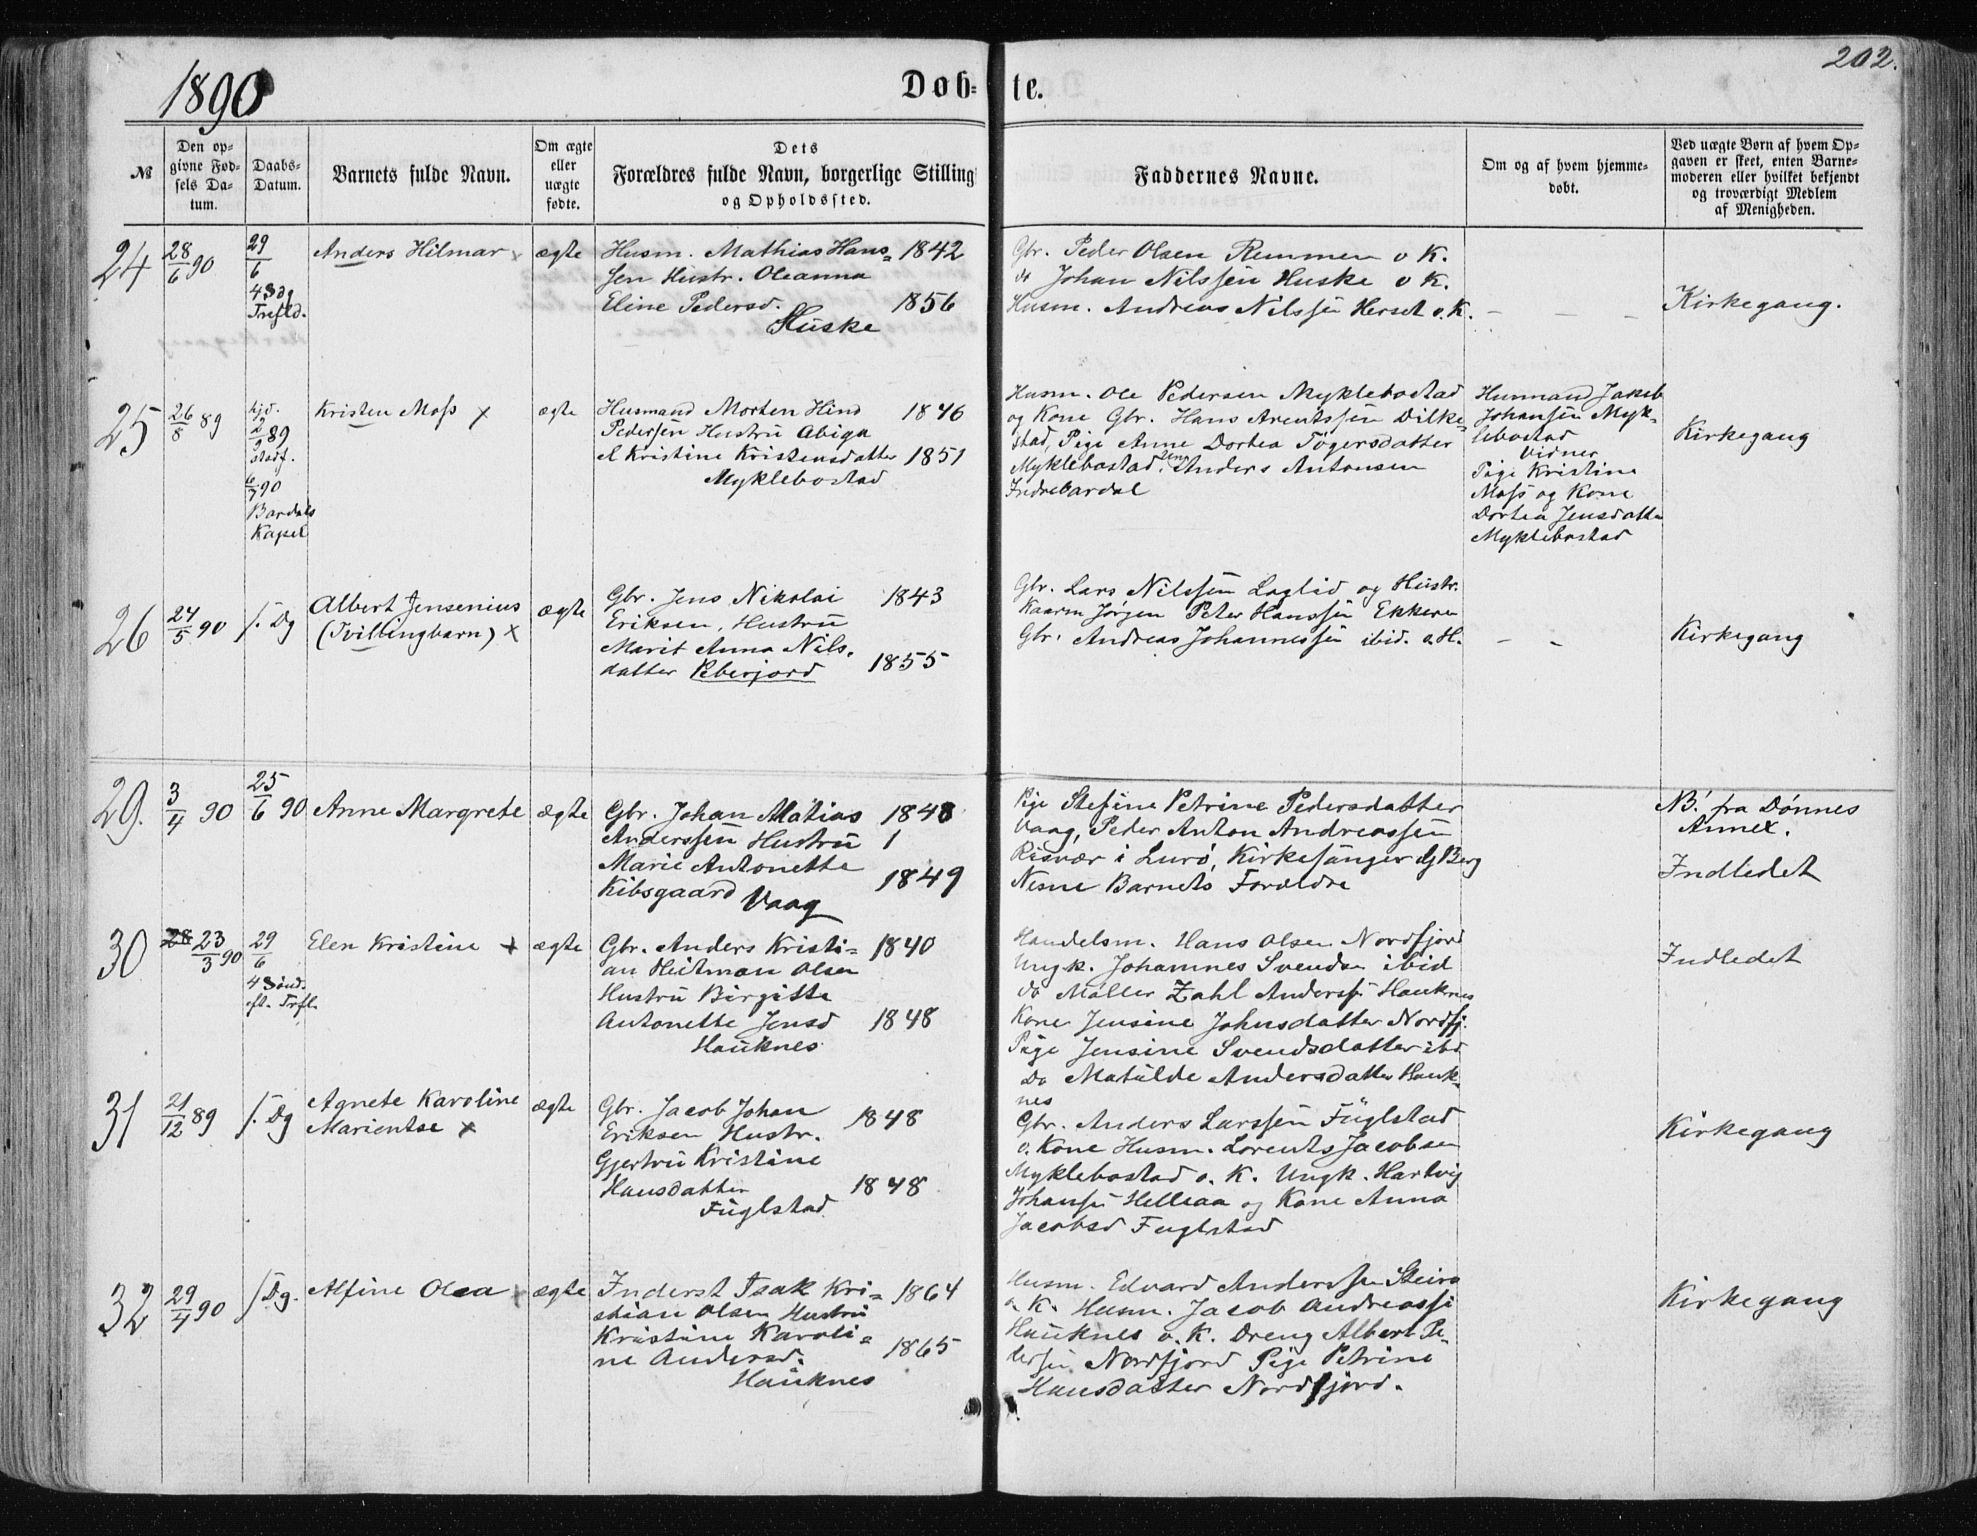 1890
Døb-te.
202.
№
Den op-
givne Fød-
sels Da-
tum.
Daabs-
Datum.
Barnets fulde Navn.
Om ægte
eller
uægte
fødte.
Dets
Forældres fulde Navn, borgerlige Stilling
og Opholdssted.
Faddernes Navne.
Om og af hvem hjemme-
døbt.
Ved uægte Børn af hvem Op-
gaven er skeet, enten Barne-
moderen eller hvilket bekjendt
og troværdigt Medlem
af Menigheden.
24
28/6 90
29/6
4 Sdg
Trefld.
Anders Hilmar x
ægte
Husm. Mathias Hans- 1842
sen Hustr. Oleanna
Eline Pedersd. 1856
Huske
Gbr. Peder Olsen Remmen o K.
do Johan Nilssen Huske o K.
Husm. Andreas Nilssen Herset o. K.
– – –
Kirkegang.
25
26/8 89
hjd.
2/ 89
stadf.
6/7 90
Bardals
Kapel
Kristen Moss x
ægte
Husmand Morten Hind 1846
Pedersen Hustru Abiga
el Kristine Kristensdatter 1851
Myklebostad
Husm. Ole Pedersen Myklebostad
og Kone Gbr. Hans Arentssen Dilke-
stad, Pige Anne Dortea Tøgersdatter
Myklebostad, Anders Antonsen
Indrebardal
Husmand Jakob
Johansen Myk-
lebostad
Vidner
Pige Kristine
Moss og Kone
Dortea Jensdatter
Myklebostad
Kirkegang
26
24/5 90
s. Dg
Albert Jensenius
(Tvillingbarn) x
ægte
Gbr. Jens Nikolai 1843
Eriksen, Hustru
Marit Anna Nils-
datter Peberjord 1855
Gbr. Lars Nilssen Laglid og Hustr.
Kaarm Jørgen Peter Hanssen Ekkeren
Gbr. Andreas Johannessen ibid. o. H.
– –
Kirkegang
29.
3/4 90
25/6 90
Anne Margrete
ægte
Gbr. Johan Matias 1848
Anderssen Hustru 1
Marie Antonette
Kibsgaard 1849
Vaag
Pige Stefine Petrine Pedersdatter
Vaag, Peder Anton Andreassen
Risvær i Lurø, Kirkesanger Berg
Nesne Barnets Forældre
NB. fra Dønnes
Annex.
Indledet
30
28 23/3 90
29/6
4 Sønd.
eft. Trefl.
Elen Kristine x
ægte
Gbr. Anders Kristi- 1840
an Heitman Olsen
Hustru Birgitte
Antonette Jensd 1848
Hauknes
Handelsm. Hans Olsen Nordfjord
Ungk. Johannes Svendsen ibid
do Møller Zahl Anderssen Hauknes
Kone Jensine Johnsdatter Nordfj.
Pige Jensine Svendsdatter ibd
Do Matilde Andersdatter Hauk-
nes
Indledet
31
21/12 89
s. Dg
Agnete Karoline
Marientse x
ægte
Gbr. Jacob Johan 1848
Eriksen Hustr.
Gjertru Kristine
Hansdatter 1848
Fuglstad
Gbr. Anders Larssen Fuglstad
o. Kone Husm. Lorents Jacobsen
Myklebostad o. K. Ungk. Hartvig
Johansen Helleaa og Kone Anna
Jacobsd Fuglstad
Kirkegang
32
29/4 90
s Dg.
Alfine Olea
ægte
Inderst Isak Kri- 1864
stian Olsen Hustru
Kristine Karoli-
ne Andersd. 1865
Hauknes
Husm. Edvard Anderssen Steiro
o K. Husm. Jacob Andreassen
Hauknes o. K. Dreng Albert Pe-
dersen Nordfjord Pige Petrine
Hansdatter Nordfjord.
Kirkegang